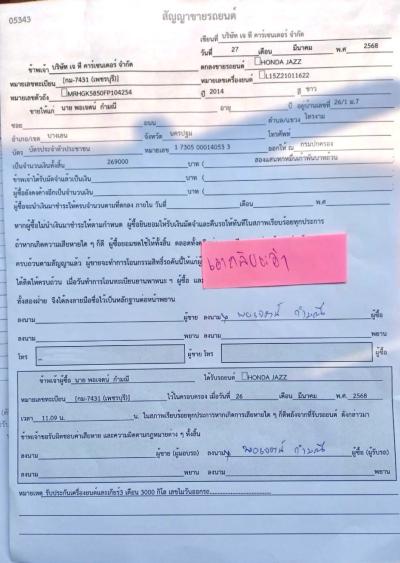 05343
สัญญาขายรถยนต์
เขียนที่ บริษัท เจ ที คาร์เซนเตอร์ จำกัด
วันที่ 27 เดือน มีนาคม พ.ศ 2568
ข้าพเจ้า บริษัท เจ ที คาร์เซนเตอร์ จำกัด ตกลงขายรถยนต์ HONDA JAZZ
หมายเลขทะเบียน [กม-7431 (เพชรบุรี)] หมายเลขเครื่องยนต์ L15Z21011622
หมายเลขตัวถัง MRHGK5850FP104254 ปี 2014 สี ขาว
ขายให้แก่ นาย พอเจตน์ กำมณี อายุ ปี อยู่บ้านเลขที่ 26/1 ม.7
ซอย ถนน ตำบล/แขวง ไทรงาม
อำเภอ/เขต บางเลน จังหวัด นครปฐม โทรศัพท์
บัตร บัตรประจำตัวประชาชน หมายเลข 1 7305 00014053 3 ออกให้ ณ กรมปกครอง
เป็นจำนวนเงินทั้งสิ้น 269000 บาท ( สองแสนหกหมื่นเก้าพันบาทถ้วน
ข้าพเจ้าได้รับมัดจำแล้วเป็นเงิน บาท (
ผู้ซื้อยังคงค้างอีกเป็นจำนวนเงิน บาท (
ผู้ซื้อจะนำเงินมาชำระให้ครบจำนวนตามที่ตกลง ภายใน วันที่ เดือน พ.ศ
หากผู้ซื้อไม่นำเงินมาชำระให้ตามกำหนด ผู้ซื้อยินยอมให้ริบเงินมัดจำและคืนรถให้ทันทีในสภาพเรียบร้อยทุกประการ
ถ้าหากเกิดความเสียหายใด ๆ ก็ดี ผู้ซื้อยอมชดใช้ให้ทั้งสิ้น
ครบถ้วนตามสัญญาแล้ว ผู้ขายจะทำการโอนกรรมสิทธิ์รถคันนี้ให้แก่ผู้
เอากลับยะฮ่า
ได้ติดให้ครบถ้วน เมื่อวันทำการโอนทะเบียนยานพาหนะ ๆ ผู้ซื้อ และ
ทั้งสองฝ่าย จึงได้ลงลายมือชื่อไว้เป็นหลักฐานต่อหน้าพยาน
ลงนาม ผู้ขาย ลงนาม พอเจตน์ กำมณี ผู้ซื้อ
ลงนาม พยาน ลงนาม พยาน
โทร ผู้ขาย โทร ผู้ซื้อ
ข้าพเจ้าผู้ซื้อ นาย พอเจตน์ กำมณี ได้รับรถยนต์ HONDA JAZZ
หมายเลขทะเบียน [กม-7431 (เพชรบุรี)] ไว้ในครอบครอง เมื่อวันที่ 26 เดือน มีนาคม พ.ศ. 2568
เวลา 11.09 น. น. ในสภาพเรียบร้อยทุกประการหากเกิดการเสียหายใด ๆ ก็ดีหลังจากที่รับรถยนต์ ดังกล่าวมา
ข้าพเจ้าขอรับผิดชอบค่าเสียหาย และความผิดตามกฎหมายต่าง ๆ ทั้งสิ้น
ลงนาม ผู้ขาย (ผู้มอบรถ) ลงนาม พอเจตน์ กำมณี ผู้ซื้อ (ผู้รับรถ)
ลงนาม พยาน ลงนาม พยาน
หมายเหตุ รับประกันเครื่องยนต์และเกียร์3 เดือน 3000 กิโล เลขไมล์วันออกรถ